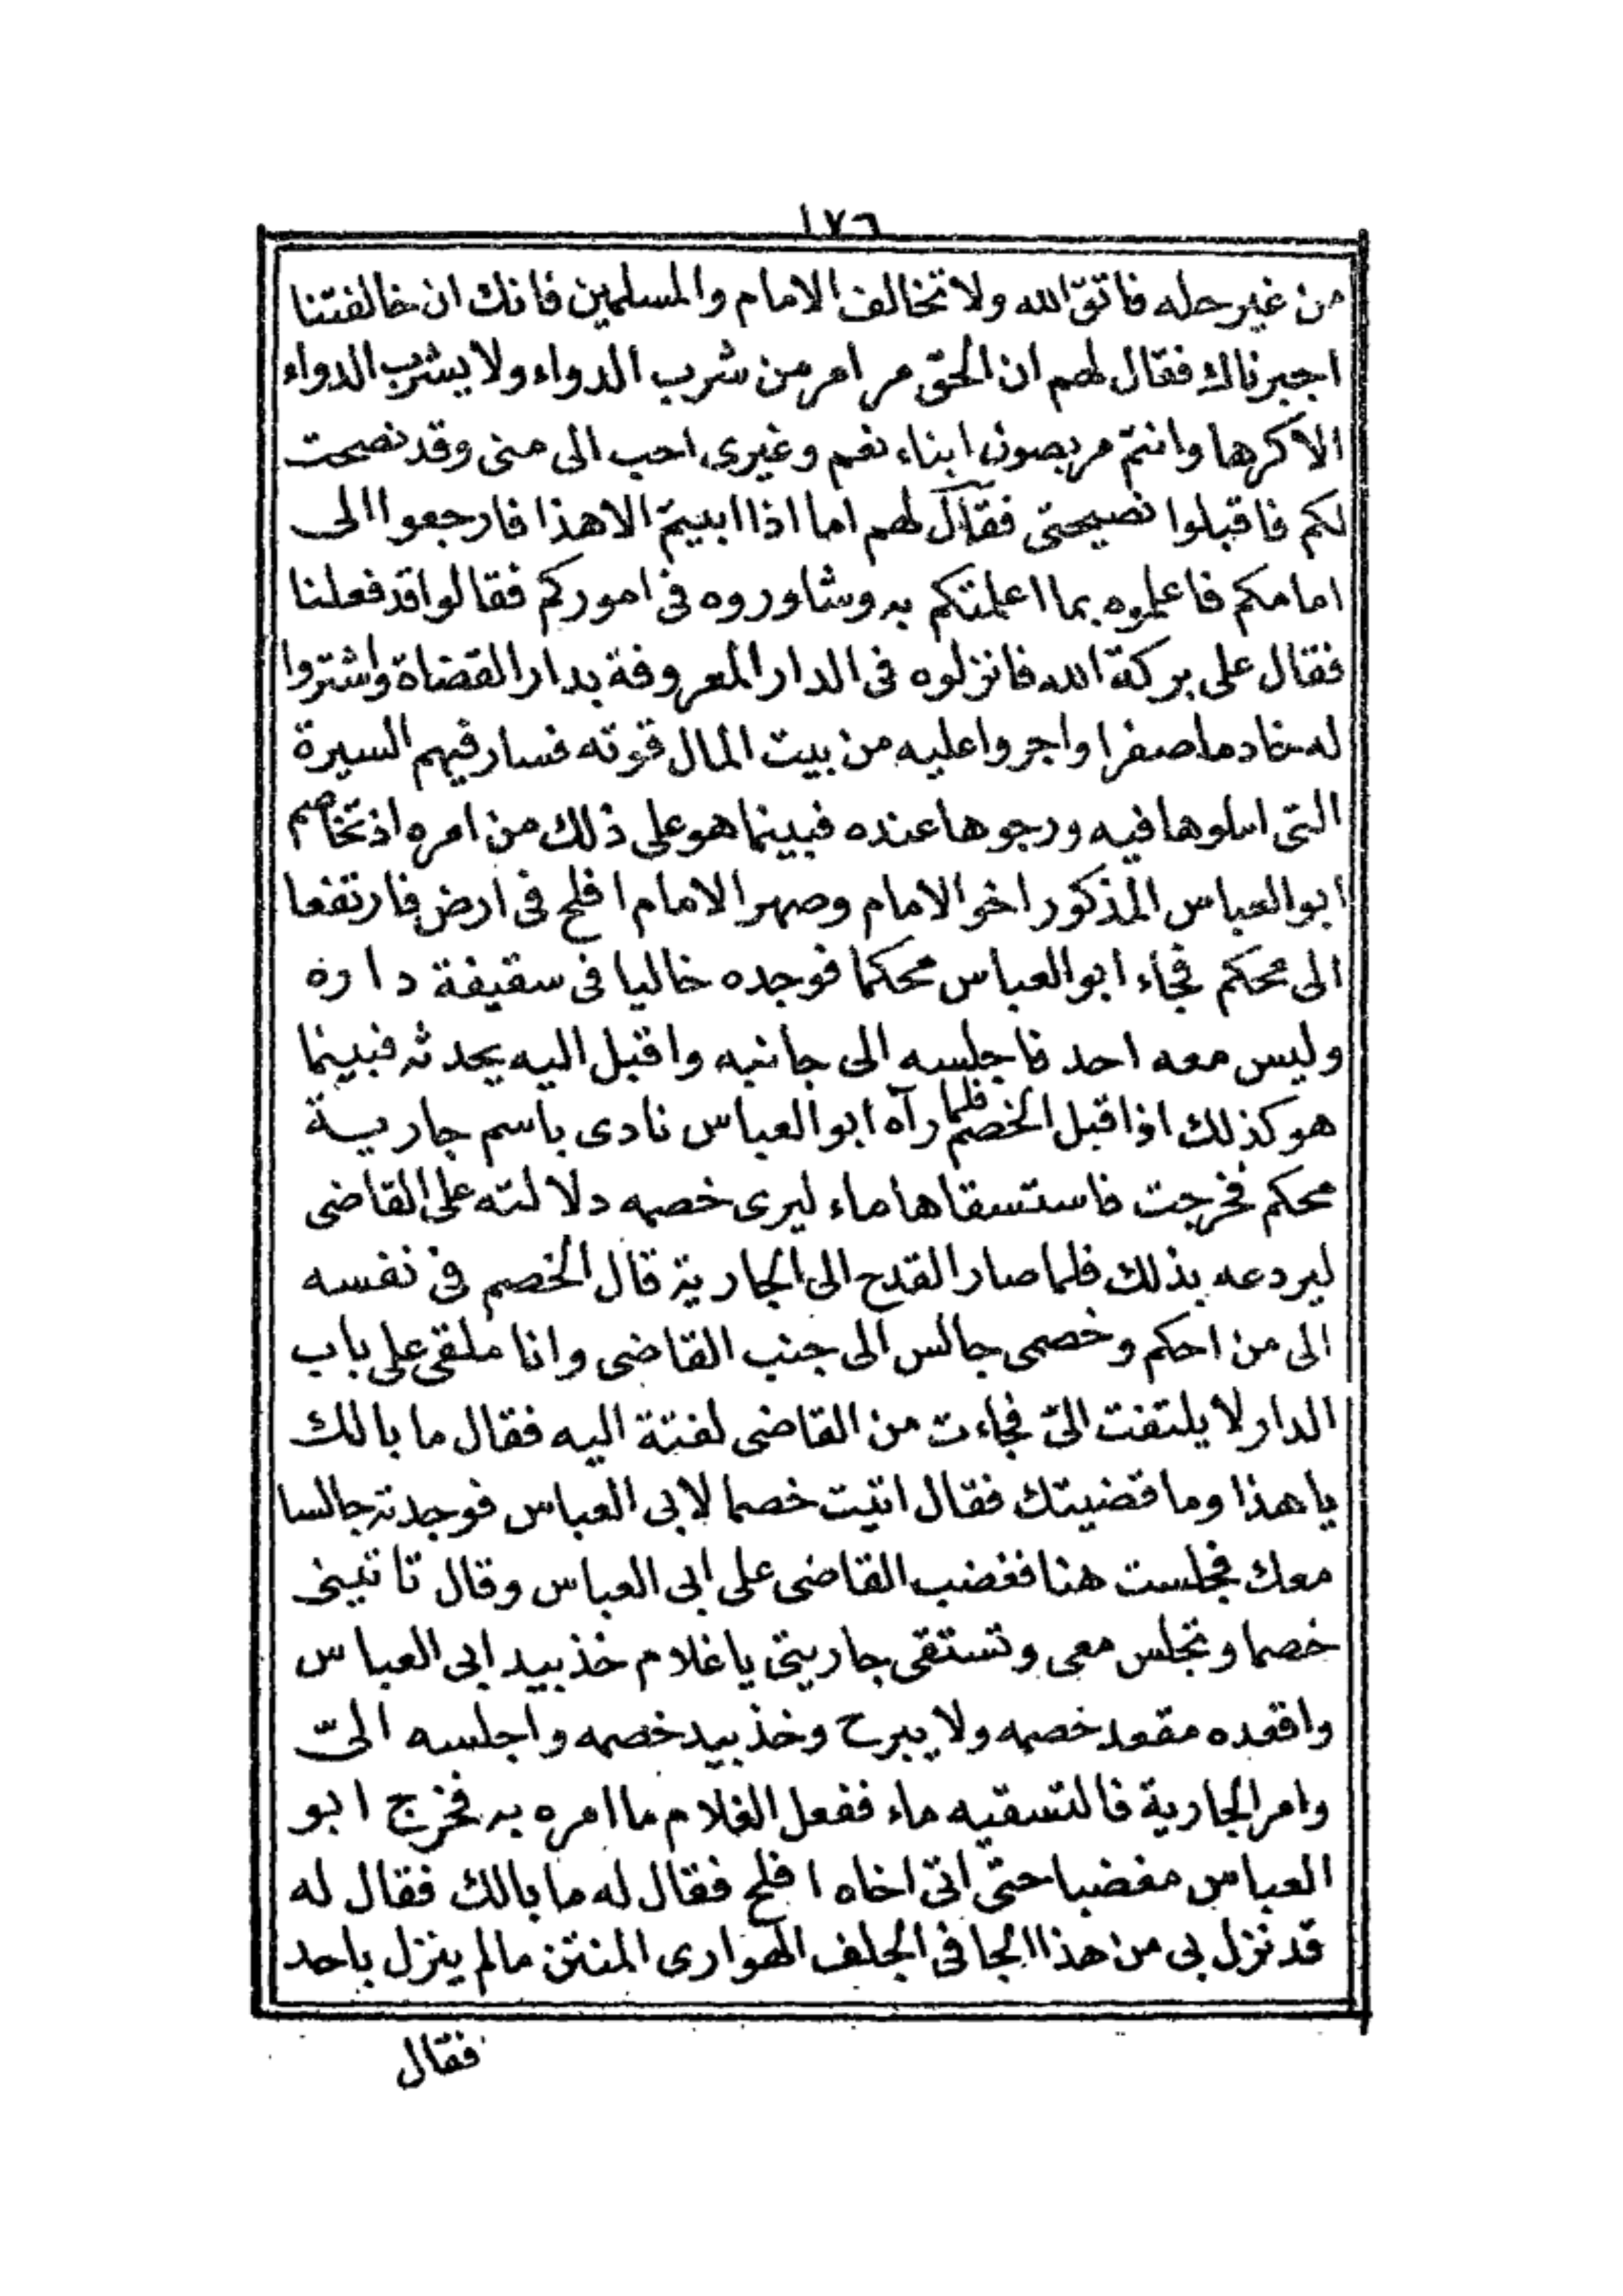 ١٧٦
من غير حله فاتق الله ولا تخالف الامام والمسلمين فانك ان خالفتنا
اجبرناك فقال لهم ان الحق مر امر من شرب الدواء ولا يشرب الدواء
الا كرها وانتم مربصون ابناء نعم وغيرى احب الى منى وقد نصحت
لكم فاقبلوا نصيحتى فقال لهم اما اذا ابيتم الا هذا فارجعوا الى
امامكم فاعلموه بما اعلمتكم به وشاوروه فى اموركم فقالوا قد فعلنا
فقال على بركة الله فانزلوه فى الدار المعروفة بدار القضاة واشتروا
له خادما صفرا واجروا عليه من بيت المال قوته فسار فيهم السيرة
التى املوها فيه ورجوها عنده فبينما هو على ذلك من امره اذ تخاصم
ابو العباس المذكور اخو الامام وصهر الامام افلح فى ارض فارتفعا
الى محكم فجاء ابو العباس محكما فوجده خاليا فى سقيفة داره
وليس معه احد فاجلسه الى جانبه واقبل اليه يحدثه فبينما
هو كذلك اذ اقبل الخصم فلما رآه ابو العباس نادى باسم جارية
محكم فخرجت فاستسقاها ماء ليرى خصمه دلالته على القاضى
ليردعه بذلك فلما صار القدح الى الجارية قال الخصم فى نفسه
الى من احكم وخصمى جالس الى جنب القاضى وانا ملقى على باب
الدار لا يلتفت الىّ فجاءت من القاضى لفتة اليه فقال ما بالك
يا هذا وما قضيتك فقال اتيت خصما لابى العباس فوجدته جالسا
معك فجلست هنا فغضب القاضى على ابى العباس وقال تاتينى
خصما وتجلس معى وتستقى جاريتى يا غلام خذ بيد ابى العباس
واقعده مقعد خصمه ولا يبرح وخذ بيد خصمه واجلسه الىّ
وامر الجارية فالتسقيه ماء ففعل الغلام ما امره به فخرج ابو
العباس مغضبا حتى اتى اخاه افلح فقال له ما بالك فقال له
قد نزل بى من هذا الجافى الجلف الهوارى المنتن ما لم ينزل باحد
فقال